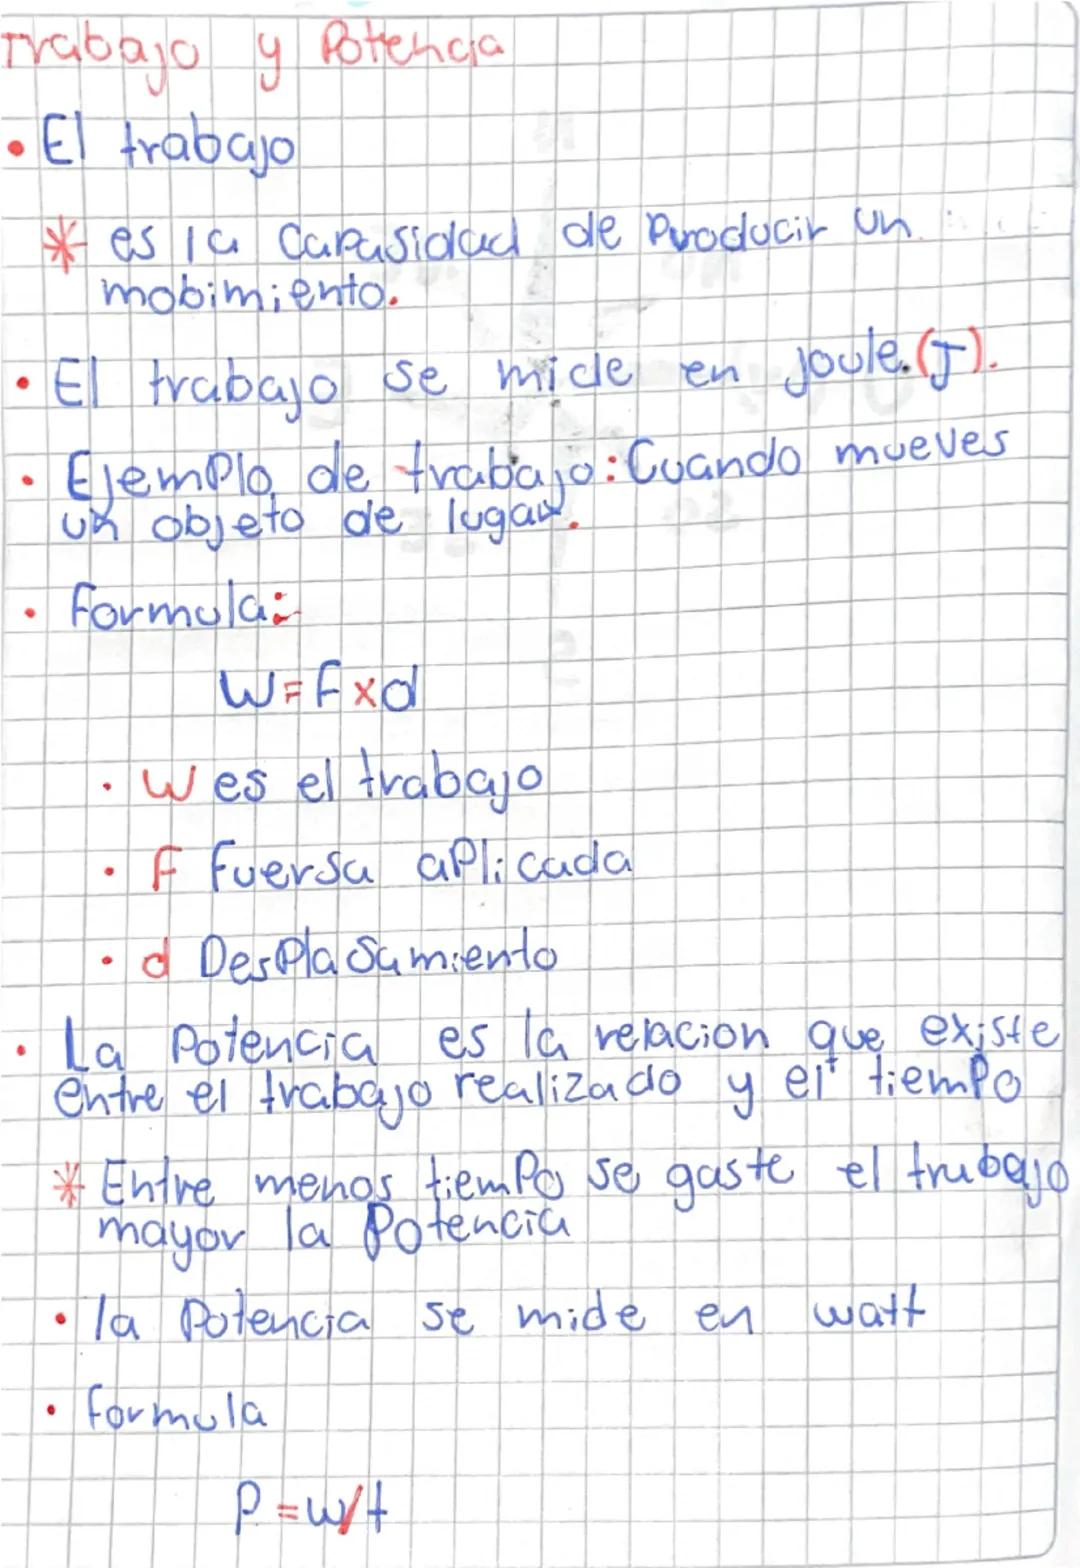 Trabajo y Potencia
• El trabajo
* es la Capasidad de Producir un
mobimiento.
• El trabajo se mide en joule.(J).
• Ejemplo de trabajo: Cuando mueves
un objeto de lugar.
• formula:
W=F×d
• W es el trabajo
• F fuersa aplicada
• d Desplasamiento
• La Potencia es la relacion que existe
entre el trabajo realizado y el tiempo
* Entre menos tiempo se gaste el trabajo
mayor la Potencia
• la Potencia se mide en watt
• formula
P=w/t